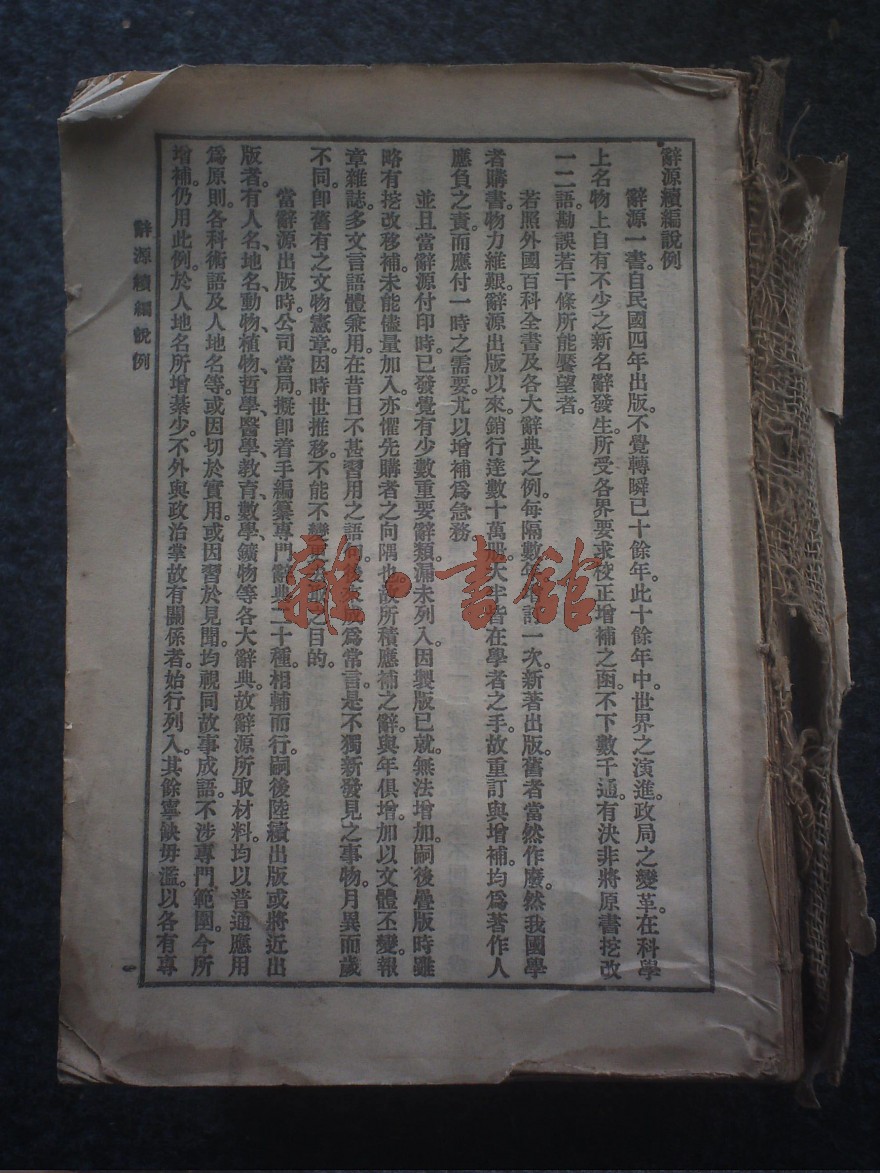 辭源續編說例
辭源一書。自民國四年出版。不覺轉瞬已十餘年。此十餘年中。世界之演進。政局之變革。在科學
上名物上自有不少之新名辭發生。所受各界要求校正增補之函。不下數千通。有決非將原書挖改
一二語。勘誤若干條所能饜望者。
若照外國百科全書及各大辭典之例。每隔數年增訂一次。新著出版。舊者當然作廢。然我國學
者購書。物力維艱。辭源出版以來。銷行達數十萬冊。大半皆在學者之手。故重訂與增補。均爲著作人
應負之責。而應付一時之需要。尤以增補爲急務。
並且當辭源付印時。已發覺有少數重要辭類。漏未列入。因製版已就。無法增加。嗣後疊版時。雖
略有挖改移補。未能儘量加入。亦懼先購者之向隅也。故所積應補之辭。與年俱增。加以文體丕變。報
章雜誌。多文言語體兼用。在昔日不甚習用之語句。後成爲常言。是不獨新發見之事物。月異而歲
不同。卽舊有之文物憲章。因時世推移。不能不變更之目的。
當辭源出版時。公司當局。擬卽着手編纂專門辭典二十種。相輔而行。嗣後陸續出版或將近出
版者。有人名、地名、動物、植物、哲學、醫學、教育、數學、鑛物等各大辭典。故辭源所取材料。均以普通應用
爲原則。各科術語及人地名等。或因切於實用。或因習於見聞。均視同故事成語。不涉專門範圍。今所
增補。仍用此例。於人地名所增綦少。不外與政治掌故有關係者。始行列入。其餘寧缺毋濫。以各有專
辭源續編說例
一
雜·書館